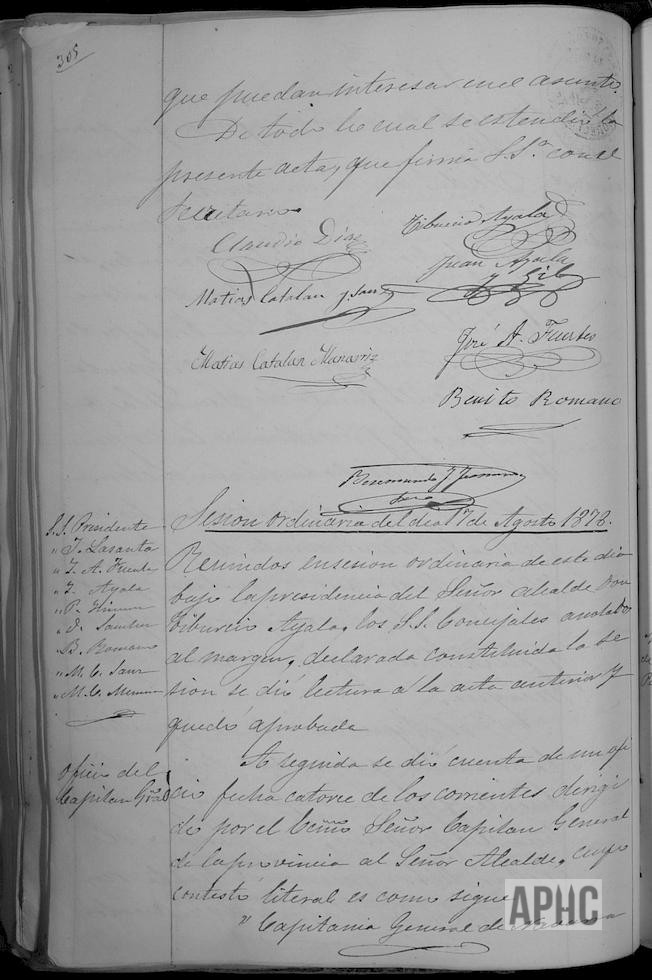 305
que puedan interesar en el asunto.
De todo lo cual se estendió la
presente acta, que firma S.Sª con el
Secretario
Claudio Díaz
Tiburcio Ayala
Juan Ayala
y Gil
Matias Catalan y Sanz
José A. Fuertes
Matias Catalan
Benito Romano
Sesion ordinaria del dia 17 de Agosto 1878.
S.S. Presidente
" J. Lasanta
" J. A. Fuerte
" J. Ayala
" P.
" B. Romano
" M. C. Sanz
" M. C.
Reunidos en sesion ordinaria de este dia
bajo la presidencia del Señor alcalde Don
Tiburcio Ayala, los S.S. Concejales anotados
al margen, declarada constituida la se
sion se dió lectura á la acta anterior y
quedó aprobada
Oficio del
Capitan Gral
A seguida se dió cuenta de un ofi
cio fecha catorce de los corrientes dirigi
do por el Ecmo Señor Capitan General
de la provincia al Señor Alcalde, cuyo
contesto literal es como sigue
" Capitania General de Navarra
APHC